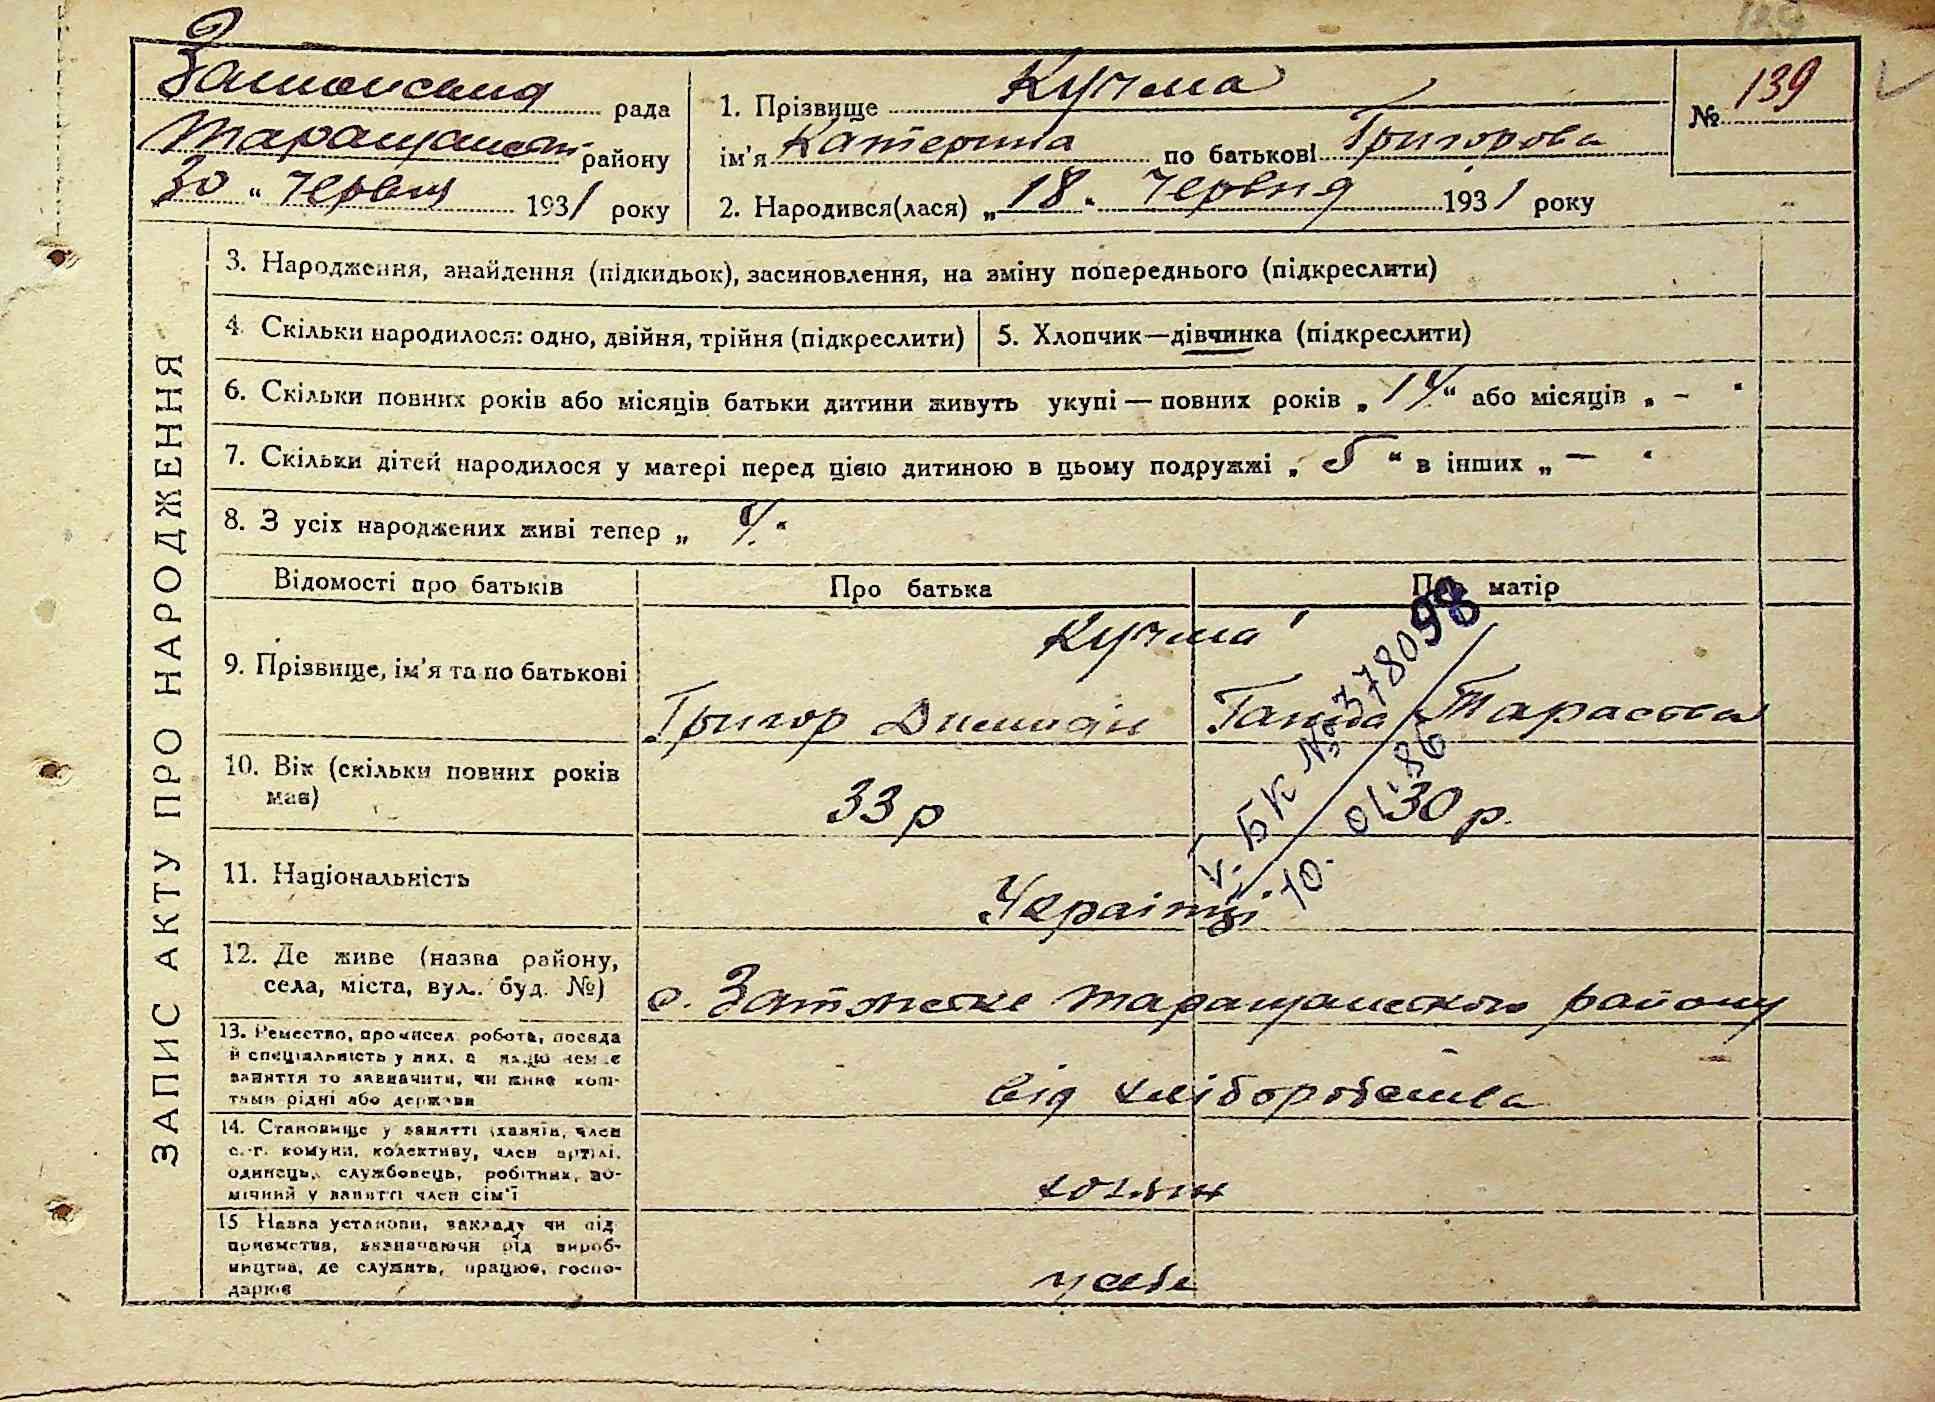 рада
району
30 " червня 1931 року
1. Прізвище Кучма
ім'я Катерина по батькові Григорова
2. Народився(лася) „18" червня 1931 року
№ 139
ЗАПИС АКТУ ПРО НАРОДЖЕННЯ
3. Народження, знайдення (підкидьок), засиновлення, на зміну попереднього (підкреслити)
4. Скільки народилося: одно, двійня, трійня (підкреслити)
5. Хлопчик—дівчинка (підкреслити)
6. Скільки повних років або місяців батьки дитини живуть укупі — повних років „ 14 " або місяців „ – "
7. Скільки дітей народилося у матері перед цією дитиною в цьому подружжі „ 5 " в інших „ – "
8. З усіх народжених живі тепер „ 4 "
Відомості про батьків
Про батька
Про матір
9. Прізвище, ім'я та по батькові
Кучма
Григор
Ганна Тарасова
10. Вік (скільки повних років
має)
33 р
30 р.
11. Національність
Українці
12. Де живе (назва району,
села, міста, вул. буд. №)
с. Затонске Таращанського району
13. Ремество, промисел, робота, посада
й спеціяльність у них, а якщо немає
заняття то зазначити, чи живе кош-
тами рідні або держави
від хліборобства
14. Становище у занятті (хазяїн, член
с.-г. комуни, колективу, член артілі,
одинець, службовець, робітник, по-
мічний у занятті член сім'ї
хазяїн
15 Назва установи, закладу чи під
приємства, зазначаючи рід вироб-
ництва, де служить, працює, госпо-
дарює
у себе
V. БК № 378098
10. 01. 86